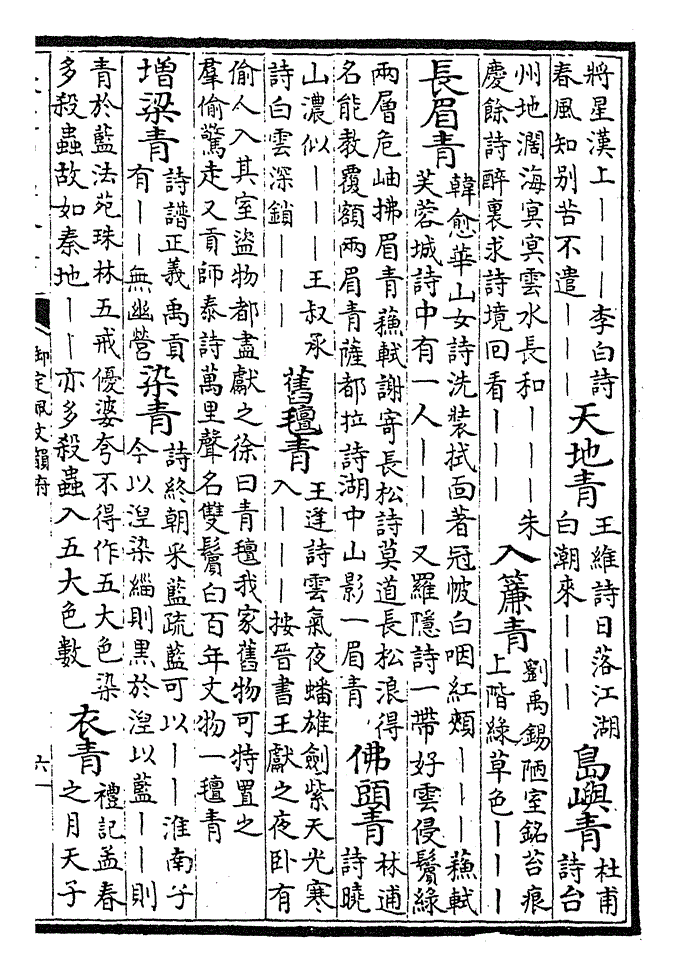 將星漢上｜｜｜李白詩
春風知别苦不遣｜｜｜
天地青
王維詩日落江湖
白潮來｜｜｜
島嶼青
杜甫
詩台
州地濶海㝠㝠雲水長和｜｜｜朱
慶餘詩醉裏求詩境回看｜｜｜
入簾青
劉禹錫陋室銘苔痕
上階綠草色｜｜｜
長眉青
韓愈華山女詩洗裝拭面著冠帔白咽紅頰｜｜｜蘇軾
芙蓉城詩中有一人｜｜｜又羅隱詩一帶好雲侵鬢綠
兩層危岫拂眉青蘇軾謝寄長松詩莫道長松浪得
名能教覆額兩眉青薩都拉詩湖中山影一眉青
佛頭青
林逋
詩曉
山濃似｜｜｜王叔承
詩白雲深鎖｜｜｜
舊氊青
王逢詩雲氣夜蟠雄劍紫天光寒
入｜｜｜按晉書王獻之夜卧有
偷人入其室盜物都盡獻之徐曰青氊我家舊物可特置之
羣偷驚走又貢師泰詩萬里聲名雙鬢白百年文物一氊青
增梁青
詩譜正義禹貢
有｜｜無幽營
染青
詩終朝采藍疏藍可以｜｜淮南子
今以湼染緇則黑於湼以藍｜｜則
青於藍法苑珠林五戒優婆夸不得作五大色染
多殺蟲故如秦地｜｜亦多殺蟲入五大色數
衣青
禮記孟春
之月天子
御定佩文韻府